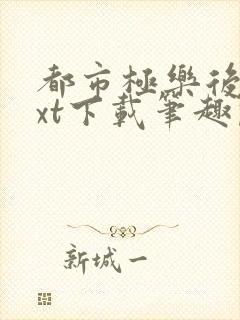 都市極樂後
xt下載筆趣
新城一